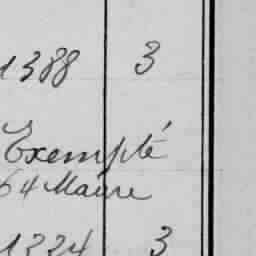 1388 3
Exempté
64 Maure
1224 3